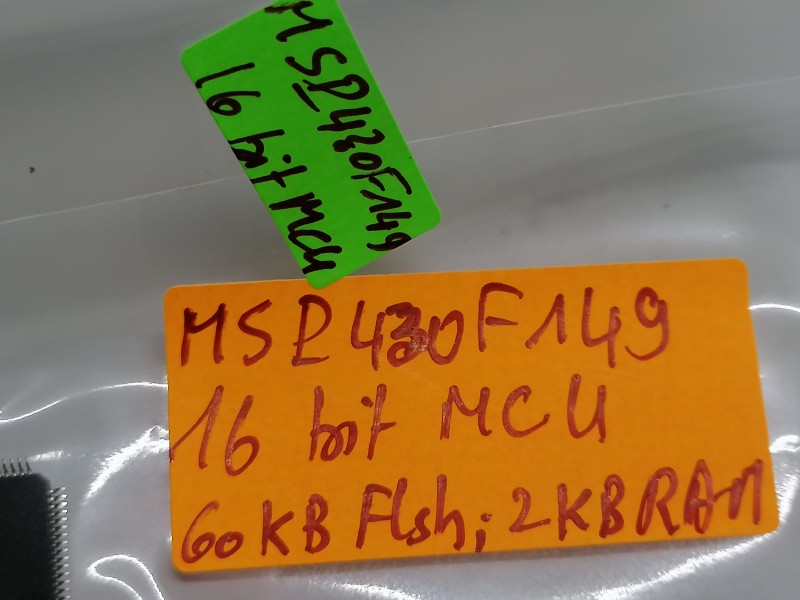 MSP430F149
16 bit MCU
MSP430F149
16 bit MCU
60KB Flsh; 2KB RAM